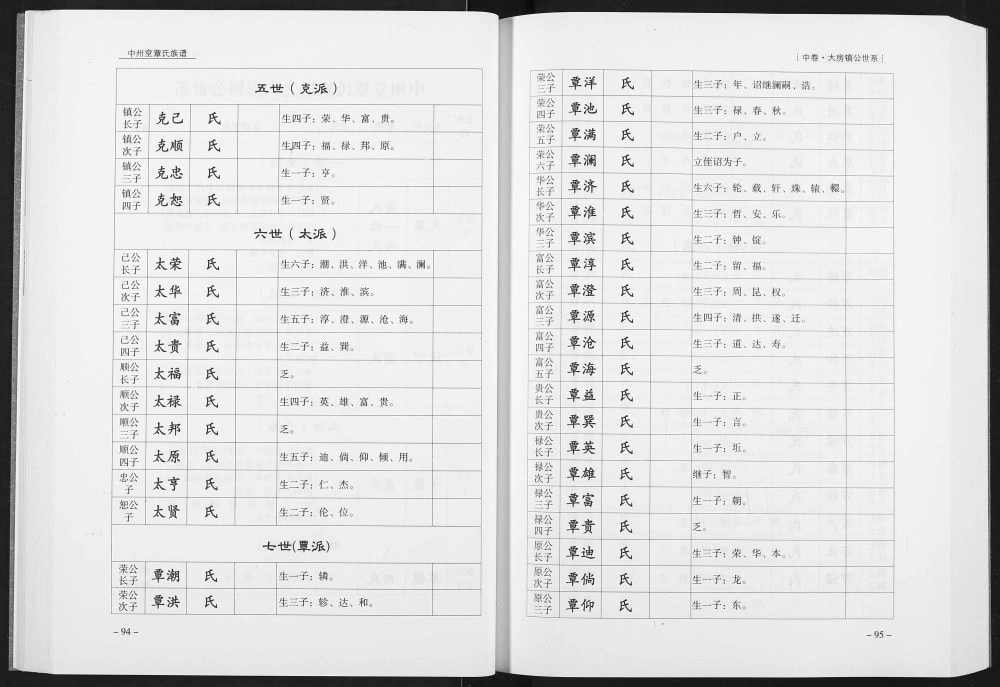 中州堂覃氏族谱
五世（克派）
镇公长子 克己 氏 生四子：荣、华、富、贵。
镇公次子 克顺 氏 生四子：福、禄、邦、原。
镇公三子 克忠 氏 生一子：亨。
镇公四子 克恕 氏 生一子：贤。
六世（太派）
己公长子 太荣 氏 生六子：潮、洪、洋、池、满、澜。
己公次子 太华 氏 生三子：济、淮、滨。
己公三子 太富 氏 生五子：淳、澄、源、沧、海。
己公四子 太贵 氏 生二子：益、巽。
顺公长子 太福 氏 乏。
顺公次子 太禄 氏 生四子：英、雄、富、贵。
顺公三子 太邦 氏 乏。
顺公四子 太原 氏 生五子：迪、倘、仰、倾、用。
忠公子 太亨 氏 生二子：仁、杰。
恕公子 太贤 氏 生二子：伦、位。
七世(覃派)
荣公长子 覃潮 氏 生一子：辚。
荣公次子 覃洪 氏 生三子：轸、达、和。
－94－
中卷·大房镇公世系
荣公三子 覃洋 氏 生三子：年、诏继澜嗣、浩。
荣公四子 覃池 氏 生三子：禄、春、秋。
荣公五子 覃满 氏 生二子：户、立。
荣公六子 覃澜 氏 立侄诏为子。
华公长子 覃济 氏 生六子：轮、载、轩、珠、辕、
华公次子 覃淮 氏 生三子：哲、安、乐。
华公三子 覃滨 氏 生二子：钟、锭。
富公长子 覃淳 氏 生二子：留、福。
富公次子 覃澄 氏 生三子：周、昆、权。
富公三子 覃源 氏 生四子：清、拱、遂、迁。
富公四子 覃沧 氏 生三子：道、达、寿。
富公五子 覃海 氏 乏。
贵公长子 覃益 氏 生一子：正。
贵公次子 覃巽 氏 生一子：言。
禄公长子 覃英 氏 生一子：垢。
禄公次子 覃雄 氏 继子：智。
禄公三子 覃富 氏 生一子：朝。
禄公四子 覃贵 氏 乏。
原公长子 覃迪 氏 生三子：荣、华、本。
原公次子 覃倘 氏 生一子：龙。
原公三子 覃仰 氏 生一子：东。
－95－